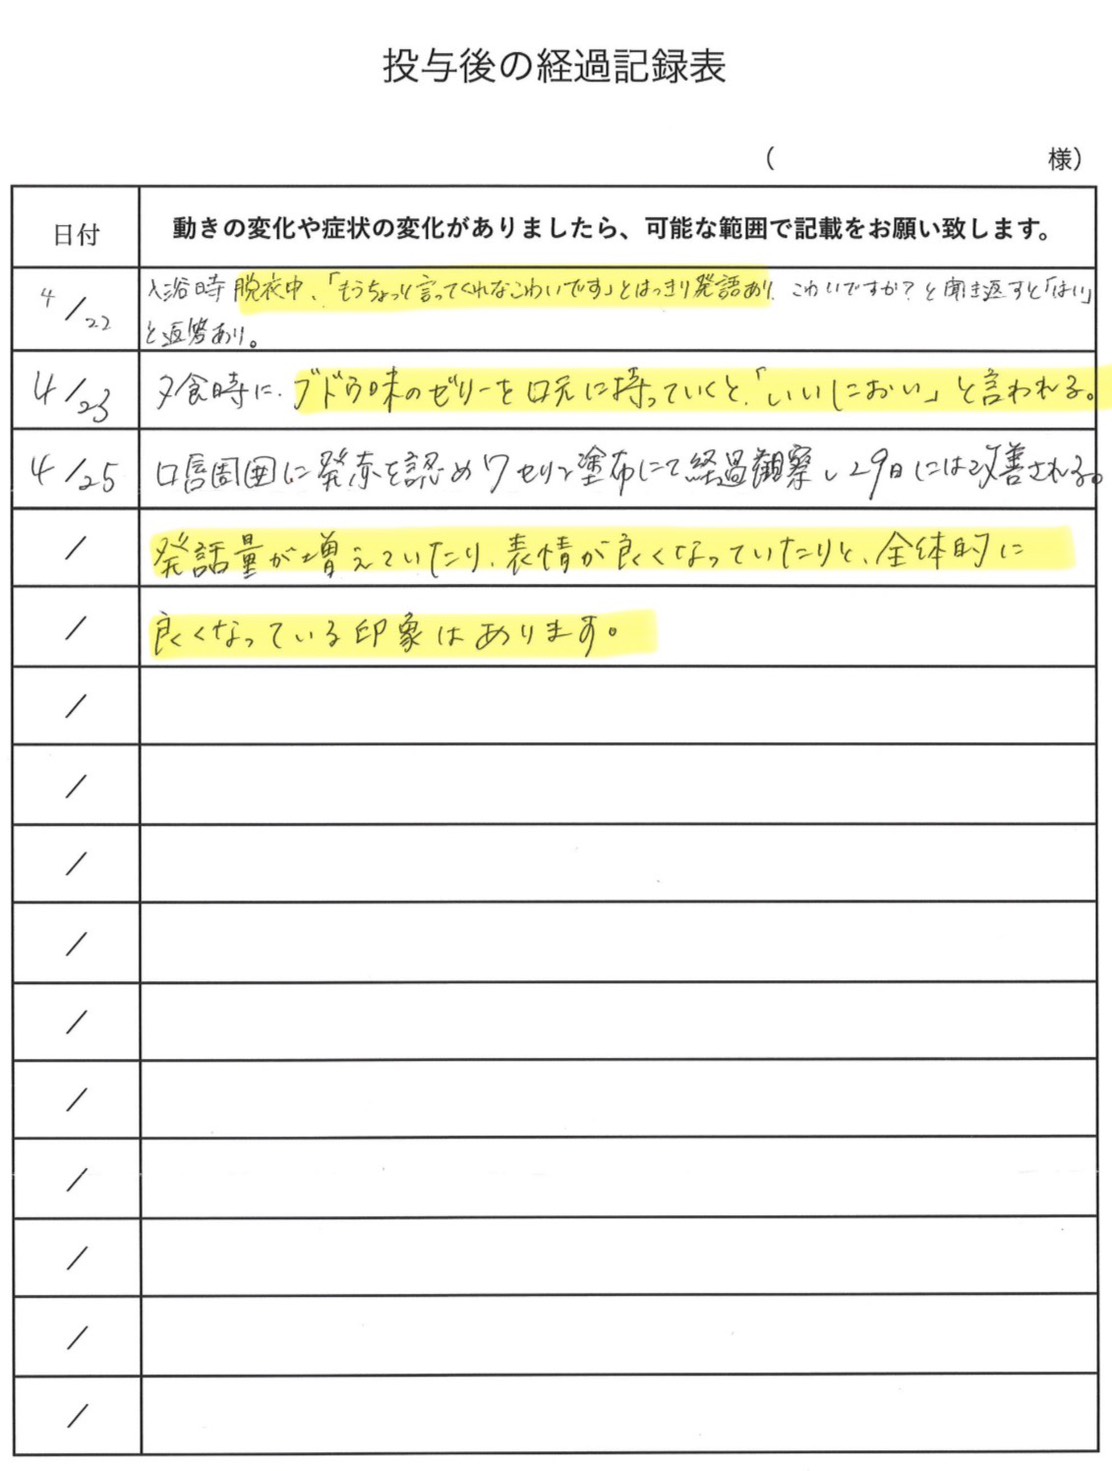 投与後の経過記録表
( 様)
日付
動きの変化や症状の変化がありましたら、可能な範囲で記載をお願い致します。
4/22
入浴時脱衣中、「もうちょっと言ってくれなこわいです」とはっきり発語あり、こわいですか?と聞き返すと「はい」
と返答あり。
4/23
夕食時に、ブドウ味のゼリーを口元に持っていくと、「いいにおい」と言われる。
4/25
口唇周囲に発赤を認めワセリン塗布にて経過観察し29日には改善される。
/
発話量が増えていたり、表情が良くなっていたりと、全体的に
/
良くなっている印象はあります。
/
/
/
/
/
/
/
/
/
/